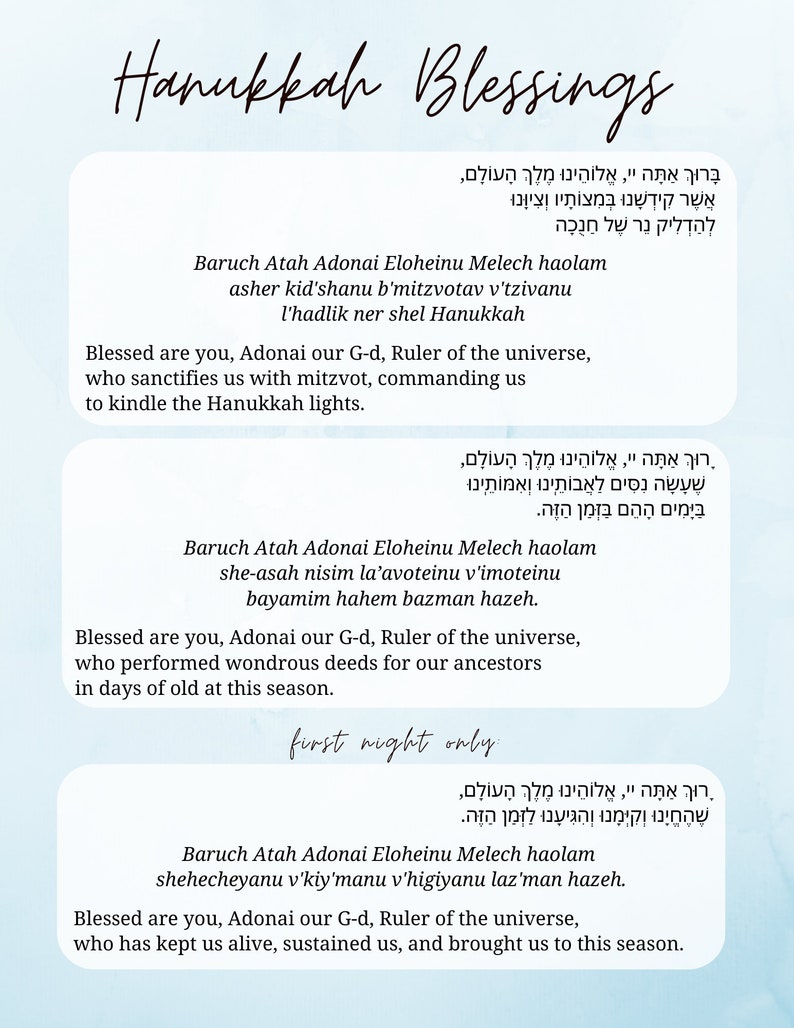 Hanukkah Blessings
בָּרוּךְ אַתָּה יי, אֱלוֹהֵינוּ מֶלֶךְ הָעוֹלָם,
אֲשֶׁר קִידְשָׁנוּ בְּמִצוֹתָיו וְצִיוָּנוּ
לְהַדְלִיק נֵר שֶׁל חַנֻכָה
Baruch Atah Adonai Eloheinu Melech haolam
asher kid'shanu b'mitzvotav v'tzivanu
l'hadlik ner shel Hanukkah
Blessed are you, Adonai our G-d, Ruler of the universe,
who sanctifies us with mitzvot, commanding us
to kindle the Hanukkah lights.
ָרוּךְ אַתָּה יי, אֱלוֹהֵינוּ מֶלֶךְ הָעוֹלָם,
שֶׁעָשָׂה נִסִּים לַאֲבוֹתֵיְנוּ וְאִמּוֹתֵיְנוּ
בַּיָּמִים הָהֵם בַּזְּמַן הַזֶּה.
Baruch Atah Adonai Eloheinu Melech haolam
she-asah nisim la’avoteinu v'imoteinu
bayamim hahem bazman hazeh.
Blessed are you, Adonai our G-d, Ruler of the universe,
who performed wondrous deeds for our ancestors
in days of old at this season.
first night only:
ָרוּךְ אַתָּה יי, אֱלוֹהֵינוּ מֶלֶךְ הָעוֹלָם,
שֶׁהֶחֱיָנוּ וְקִיְּמָנוּ וְהִגִּיעָנוּ לַזְּמַן הַזֶּה.
Baruch Atah Adonai Eloheinu Melech haolam
shehecheyanu v'kiy'manu v'higiyanu laz'man hazeh.
Blessed are you, Adonai our G-d, Ruler of the universe,
who has kept us alive, sustained us, and brought us to this season.